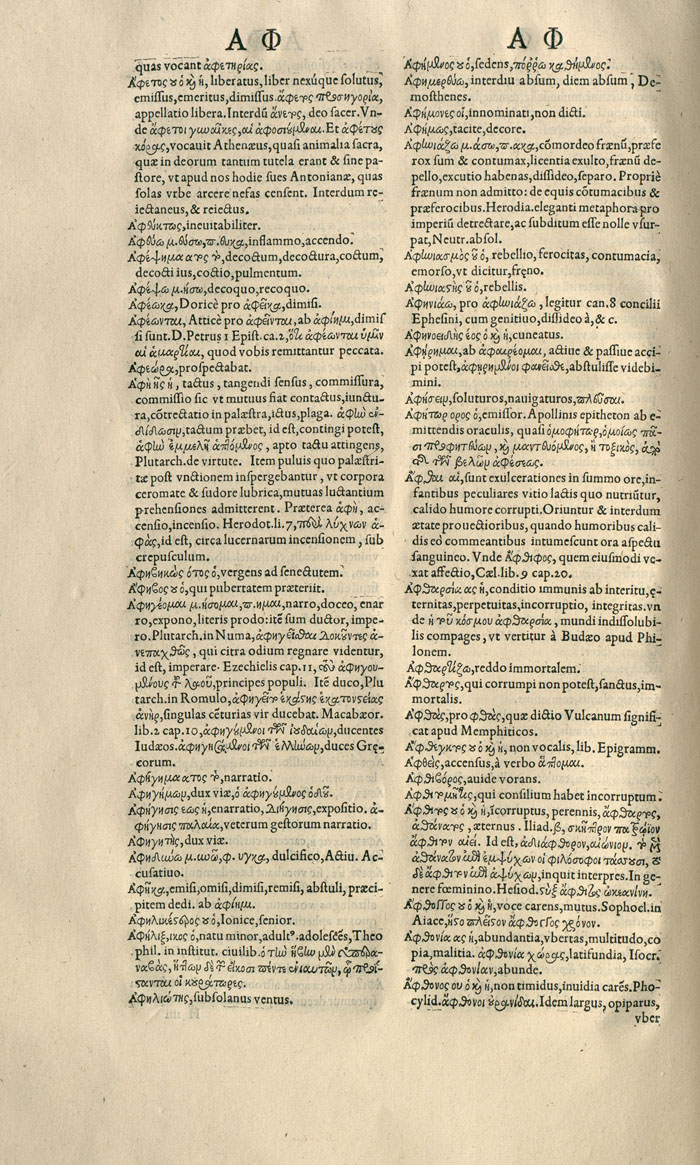 Α Φ
quas vocant ἀφετηρίας.
Ἄφετος ου ὁ καὶ ἡ, liberatus, liber nexúque solutus,
emissus, emeritus, dimissus. ἄφετος προσηγορία,
appellatio libera. Interdū ἄνετος, deo sacer. Vn-
de ἄφετοι γυναῖκες, αἱ ἀφοσιούμεναι. Et ἀφέτους
κόρας, vocauit Athenæus, quasi animalia sacra,
quæ in deorum tantum tutela erant & sine pa-
store, vt apud nos hodie sues Antonianæ, quas
solas vrbe arcere nefas censent. Interdum re-
iectaneus, & reiectus.
Ἀφύκτως, ineuitabiliter.
Ἀφεύω μ. εύσω, π. ευκα, inflammo, accendo.
Ἀφέψημα ατος τὸ, decoctum, decoctura, coctum,
decocti ius, coctio, pulmentum.
Ἀφέψω μ. ήσω, decoquo, recoquo.
Ἀφέωκα, Doricè pro ἀφεῖκα, dimisi.
Ἀφέωνται, Atticè pro ἀφεῖνται, ab ἀφίημι, dimis
si sunt. D. Petrus 1 Epist. ca. 2, ὅτι ἀφέωνται ὑμῖν
αἱ ἁμαρτίαι, quod vobis remittantur peccata.
Ἀφεώρα, prospectabat.
Ἀφὴ ῆς ἡ, tactus, tangendi sensus, commissura,
commissio sic vt mutuus fiat contactus, iunctu-
ra, cōtrectatio in palæstra, ictus, plaga. ἀφὴν ἐν-
διδώσιν, tactum præbet, id est, contingi potest,
ἀφὴν ἐμμελῆ ἁπτόμενος, apto tactu attingens,
Plutarch. de virtute. Item puluis quo palæstri-
tæ post vnctionem inspergebantur, vt corpora
ceromate & sudore lubrica, mutuas luctantium
prehensiones admitterent. Præterea ἀφὴ, ac-
censio, incensio. Herodot. li. 7, περὶ λύχνων ἀ-
φὰς, id est, circa lucernarum incensionem, sub
crepusculum.
Ἀφηβηκὼς ότος ὁ, vergens ad senectutem.
Ἄφηβος ου ὁ, qui pubertatem præteriit.
Ἀφηγέομαι μ. ήσομαι, π. ημαι, narro, doceo, enar
ro, expono, literis prodo: itē sum ductor, impe-
ro. Plutarch. in Numa, ἀφηγεῖσθαι δοκοῦντες ἀ-
νεπαχθῶς, qui citra odium regnare videntur,
id est, imperare. Ezechielis cap. 11, τοὺς ἀφηγου-
μένους τοῦ λαοῦ, principes populi. Itē duco, Plu
tarch. in Romulo, ἀφηγεῖτο ἑκάστης ἑκατοντείας
ἀνὴρ, singulas cēturias vir ducebat. Macabæor.
lib. 2 cap. 10, ἀφηγούμενοι τῶν ἰουδαίων, ducentes
Iudæos. ἀφηγησάμενοι τῶν ἑλλήνων, duces Grę-
corum.
Ἀφήγημα ατος τὸ, narratio.
Ἀφηγήμων, dux viæ, ὁ ἀφηγούμενος ὁδοῦ.
Ἀφήγησις εως ἡ, enarratio, διήγησις, expositio. ἀ-
φήγησις παλαιὰ, veterum gestorum narratio.
Ἀφηγητὴς, dux viæ.
Ἀφηδύνω μ. υνῶ, φ. υγκα, dulcifico, Actiu. Ac-
cusatiuo.
Ἀφῆκα, emisi, omisi, dimisi, remisi, abstuli, præci-
pitem dedi. ab ἀφίημι.
Ἀφηλικέστερος ου ὁ, Ionice, senior.
Ἀφῆλιξ, ικος ὁ, natu minor, adultꝰ. adolescēs, Theo
phil. in institut. ciuilib. ὁ τὴν ἥβην μὲν ὑπερα-
ναβὰς, ἥττων δὲ τῶν εἴκοσι πέντε ἐνιαυτῶν, ᾧ προΐ-
στανται οἱ κουράτορες.
Ἀφηλιώτης, subsolanus ventus.
Α Φ
Ἀφήμενος ου ὁ, sedens, πόῤῥω καθήμενος.
Ἀφημερεύω, interdiu absum, diem absum, De-
mosthenes.
Ἀφήμονες οἱ, innominati, non dicti.
Ἀφήμως, tacite, decore.
Ἀφηνιάζω μ. άσω, π. ακα, cōmordeo frænū, præfe
rox sum & contumax, licentia exulto, frænū de-
pello, excutio habenas, dissideo, separo. Propriè
frænum non admitto: de equis cōtumacibus &
præferocibus. Herodia. eleganti metaphora pro
imperiū detrectare, ac subditum esse nolle vsur-
pat, Neutr. absol.
Ἀφηνιασμὸς οῦ ὁ, rebellio, ferocitas, contumacia,
emorso, vt dicitur, fręno.
Ἀφηνιαστὴς οῦ ὁ, rebellis.
Ἀφηνιάω, pro ἀφηνιάζω, legitur can. 8 concilii
Ephesini, cum genitiuo, dissideo à, & c.
Ἀφηνοειδὴς έος ὁ καὶ ἡ, cuneatus.
Ἀφῄρημαι, ab ἀφαιρέομαι, actiue & passiue acci
pi potest, ἀφῃρημένοι φανεῖσθε, abstulisse videbi-
mini.
Ἀφήσειν, soluturos, nauigaturos, πλεῦσαι.
Ἀφήτωρ ορος ὁ, emissor. Apollinis epitheton ab e-
mittendis oraculis, quasi ὁμοφήτωρ, ὁμοίως πᾶ-
σι προφητεύων, καὶ μαντευόμενος, ἢ τοξικὸς, ἀπὸ
τῆς τῶν βελῶν ἀφέσεως.
Ἄφθαι αἱ, sunt exulcerationes in summo ore, in-
fantibus peculiares vitio lactis quo nutriūtur,
calido humore corrupti. Oriuntur & interdum
ætate prouectioribus, quando humoribus cali-
dis eò commeantibus intumescunt ora aspectu
sanguineo. Vnde ἄφθιφος, quem eiusmodi ve-
xat affectio, Cæl. lib. 9 cap. 20.
Ἀφθαρσία ας ἡ, conditio immunis ab interitu, ę-
ternitas, perpetuitas, incorruptio, integritas. vn
de ἡ τοῦ κόσμου ἀφθαρσία, mundi indissolubi-
lis compages, vt vertitur à Budæo apud Phi-
lonem.
Ἀφθαρτίζω, reddo immortalem.
Ἄφθαρτος, qui corrumpi non potest, sanctus, im-
mortalis.
Ἀφθὰς, pro φθὰς, quæ dictio Vulcanum signifi-
cat apud Memphiticos.
Ἄφθεγκτος ου ὁ καὶ ἡ, non vocalis, lib. Epigramm.
Ἀφθεὶς, accensus, à verbo ἅπτομαι.
Ἀφθιβόρος, auide vorans.
Ἀφθιτόμητις, qui consilium habet incorruptum.
Ἄφθιτος ου ὁ καὶ ἡ, īcorruptus, perennis, ἄφθαρτος,
ἀθάνατος, æternus. Iliad. β, σκῆπτρον πατρώϊον
ἄφθιτον αἰεί. Id est, ἀδιάφθορον, αἰώνιον. τὸ μὲν
ἀθάνατον ἐπὶ ἐμψύχων οἱ φιλόσοφοι τάσσουσι, τὸ
δὲ ἄφθιτον ἐπὶ ἀψύχων, inquit interpres. In ge-
nere fœminino. Hesiod. στὺξ ἄφθιτος ὠκεανίνη.
Ἄφθογγος ου ὁ καὶ ἡ, voce carens, mutus. Sophocl. in
Aiace, ἧσο πλεῖστον ἄφθογγος χρόνον.
Ἀφθονία ας ἡ, abundantia, vbertas, multitudo, co
pia, malitia. ἀφθονία χώρας, latifundia, Isocr.
πρὸς ἀφθονίαν, abunde.
Ἄφθονος ου ὁ καὶ ἡ, non timidus, inuidia carēs. Pho-
cylid. ἄφθονοι οὐρανίδαι. Idem largus, opiparus,
vber